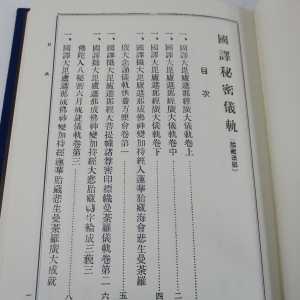 國譯秘密儀軌（胎藏法部）
目次
一、國譯大毘盧遮那經廣大儀軌卷上
一、國譯大毘盧遮那經廣大儀軌卷中
一、國譯大毘盧遮那經廣大儀軌卷下
一、國譯攝大毘盧遮那成佛神變加持經入蓮華胎藏海會悲生曼荼羅
廣大念誦儀軌供養方便會卷第一
一、國譯攝大毘盧遮那經大菩提幢諸尊密印標幟曼荼羅儀軌卷第二
一、國譯攝大毘盧遮那成佛神變加持經大悲胎藏轉字輪成三藐三
佛陀入八秘密六月成就儀軌卷第三
一、國譯大毘盧遮那成佛神變加持經蓮華胎藏悲生曼荼羅廣大成就
目次